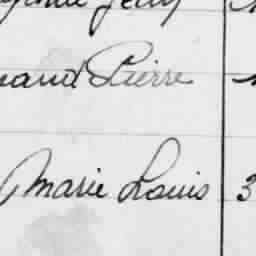 Jelly
nand Pierre
Marie Louis 3